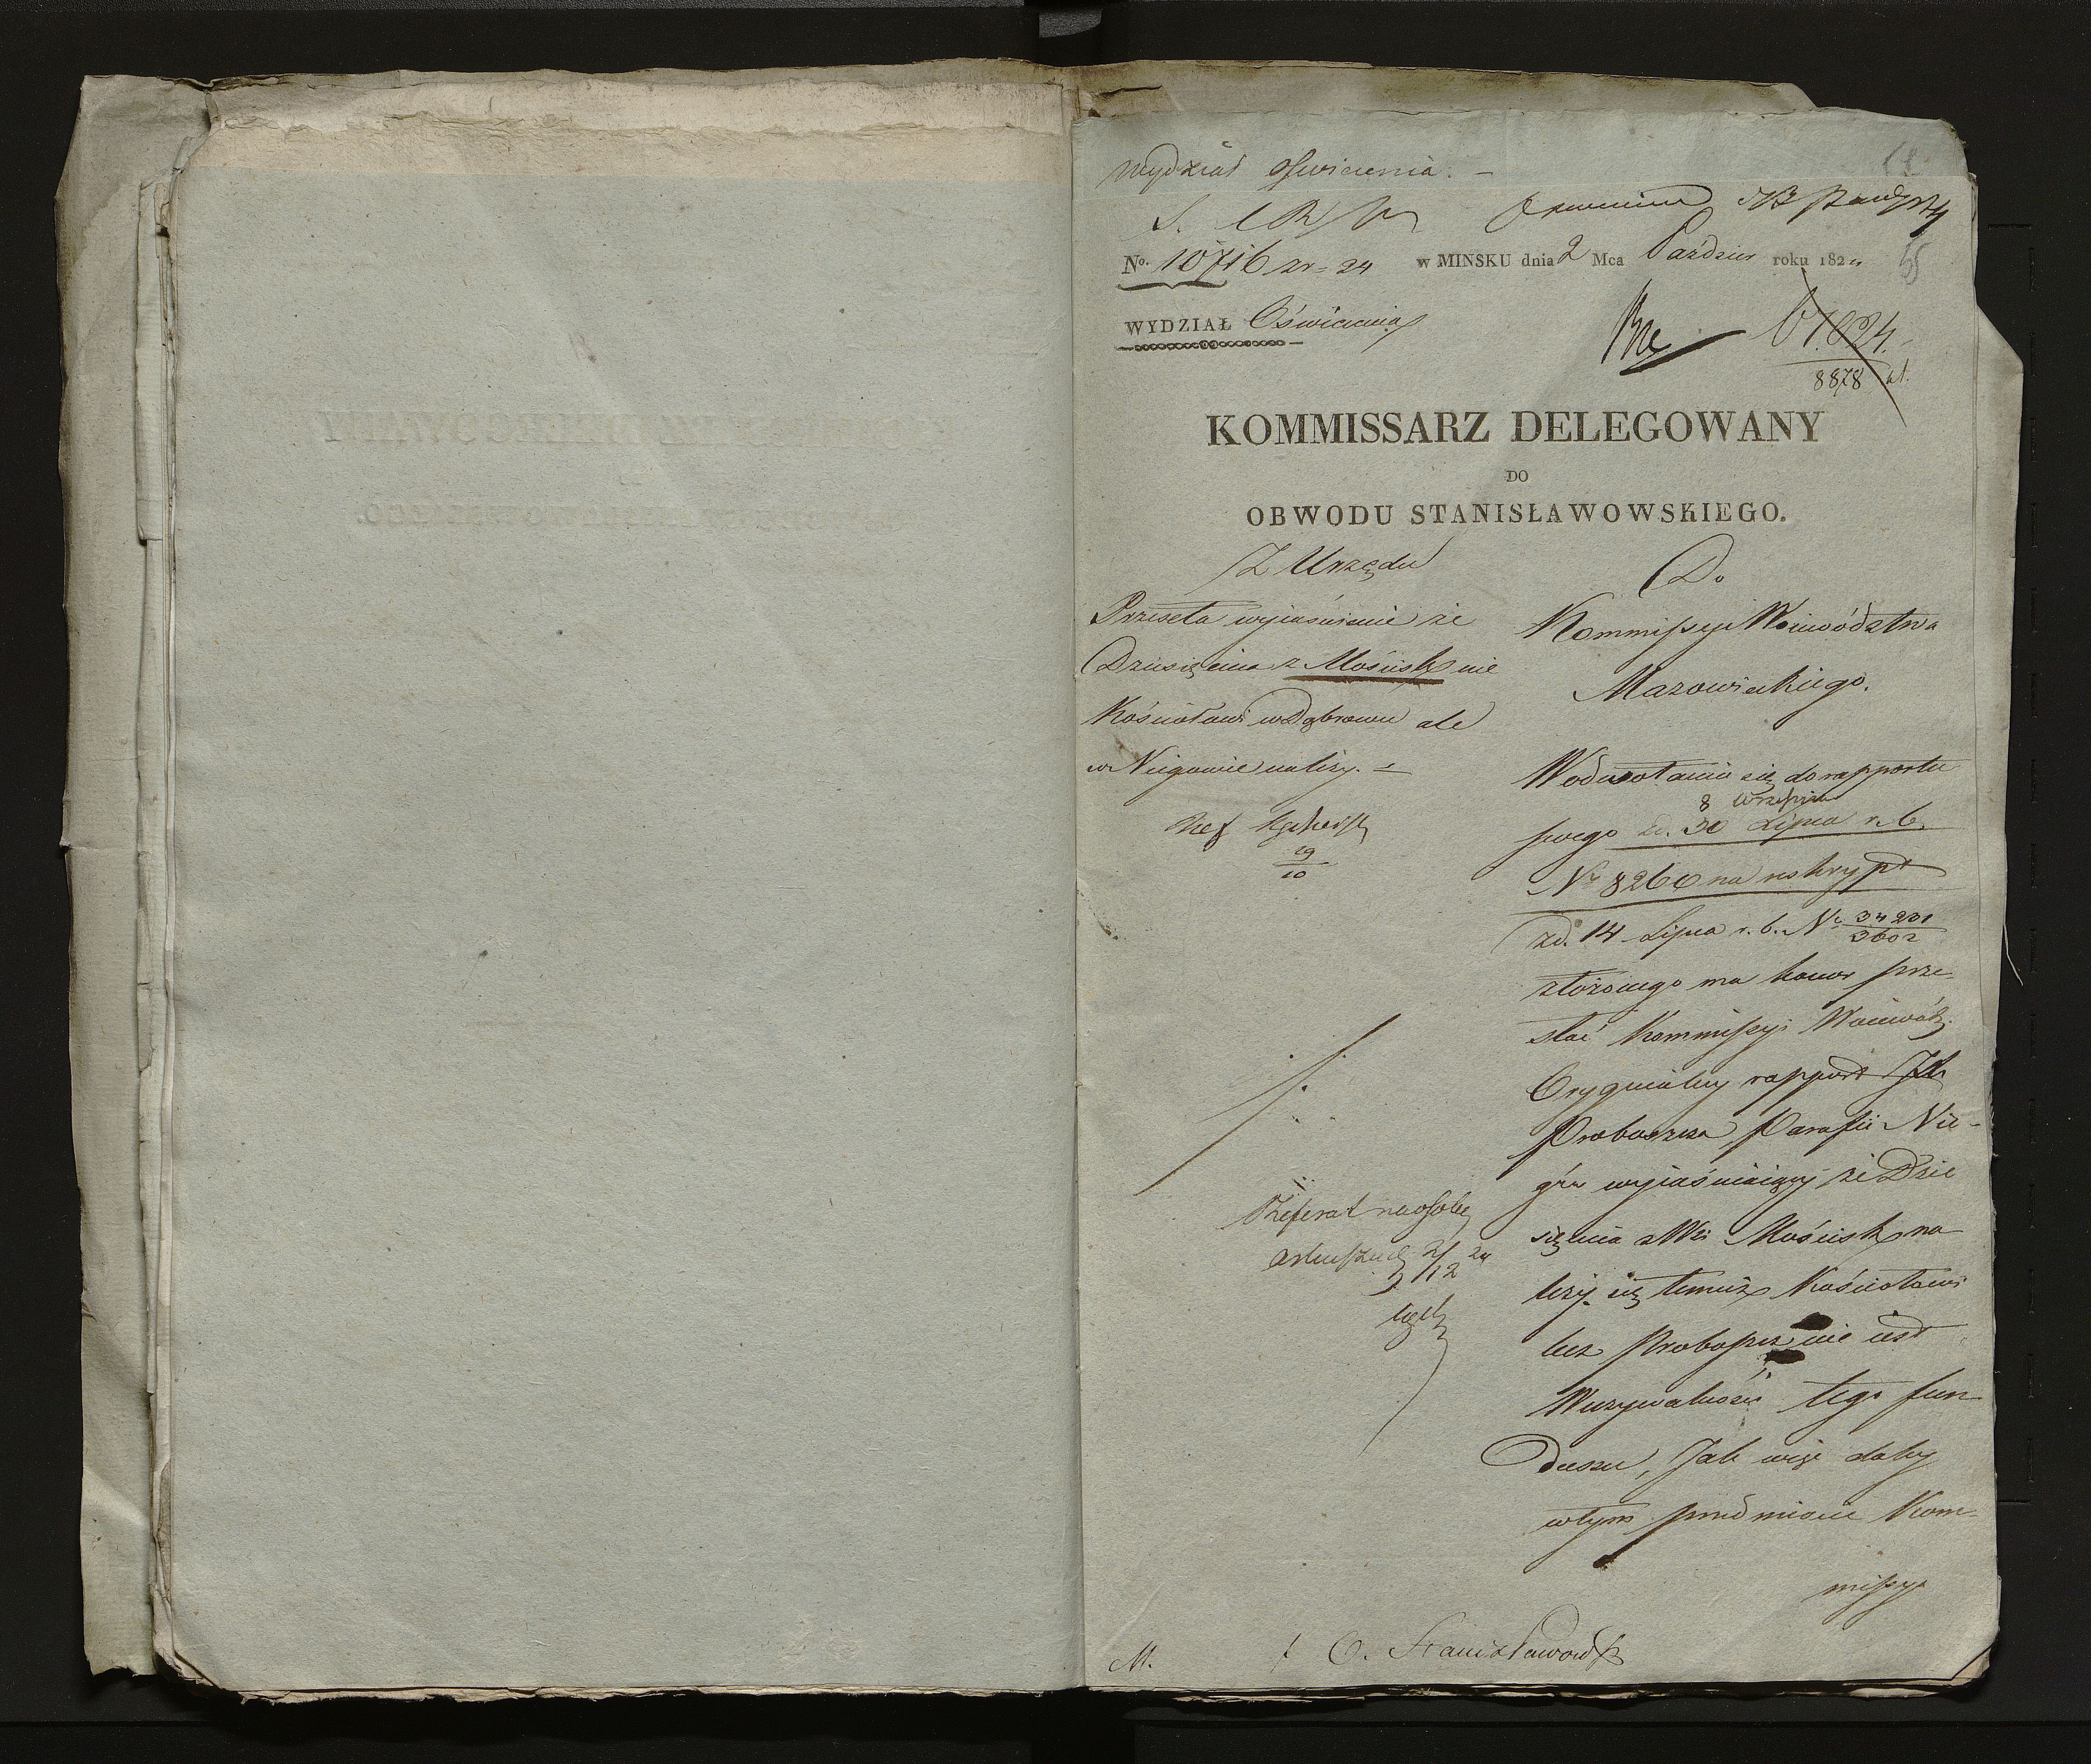 Wydział Oświecenia. –
No. 10716 zr = 24 w MINSKU dnia 2 Mca Paździer roku 1824
55
WYDZIAŁ Oświecenia
61.024.
8878
KOMMISSARZ DELEGOWANY
DO
OBWODU STANISŁAWOWSKIEGO.
Z Urzędu
Przeseła wyiaśnienie że
Dziesięcina z Mościsk nie
Kościołowi w Dąbrowie ale
w Niegowie należy. =
19
10
Referat na osobę
arkuszu 2/12 24
Do
Kommissyi Woiewództwa
Mazowieckiego.
W odwołaniu się do rapportu
8 Września
swego z d. 30 Lipca r. b.
No 8260 na reskrypt
z d. 14 Lipca r. b. No 34231
3602
złożonego ma honor prze-
słać Kommissyi Woiewódz.
Oryginalny rapport JX
Proboszcza Parafii Nie-
gów wyiaśniaiący że Dzie
sięcina z Wsi Mościsk na
leży się temuż Kościołowi
lecz Proboszcz nie iest
W używalności tego fun-
duszu, Jak więc daley
w tym przedmiocie Kom-
missya
M.
O. Stanisławowsk